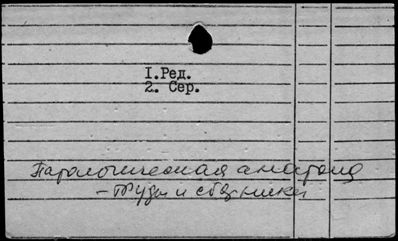 1.Ред.
2. Сер.
Патологическая анатомия
- Труды и сборники